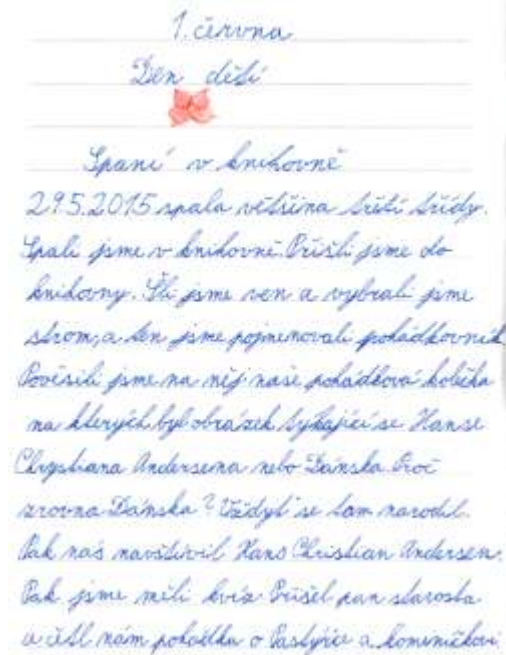 1. června
Den dětí
Spaní v knihovně
29.5.2015 spala většina třetí třídy.
Spali jsme v knihovně. Přišli jsme do
knihovny. Šli jsme ven a vybrali jsme
strom, a ten jsme pojmenovali pohádkovník.
Pověsili jsme na něj naše pohádková kolečka
na kterých byl obrázek týkající se Hanse
Chrystiana Andersena nebo Dánska. Proč
zrovna Dánska? Vždyť se tam narodil.
Pak nás navštívil Hans Christian Andersen.
Pak jsme měli kvíz. Přišel pan starosta
a četl nám pohádku o Pastýřce a kominíčkovi.